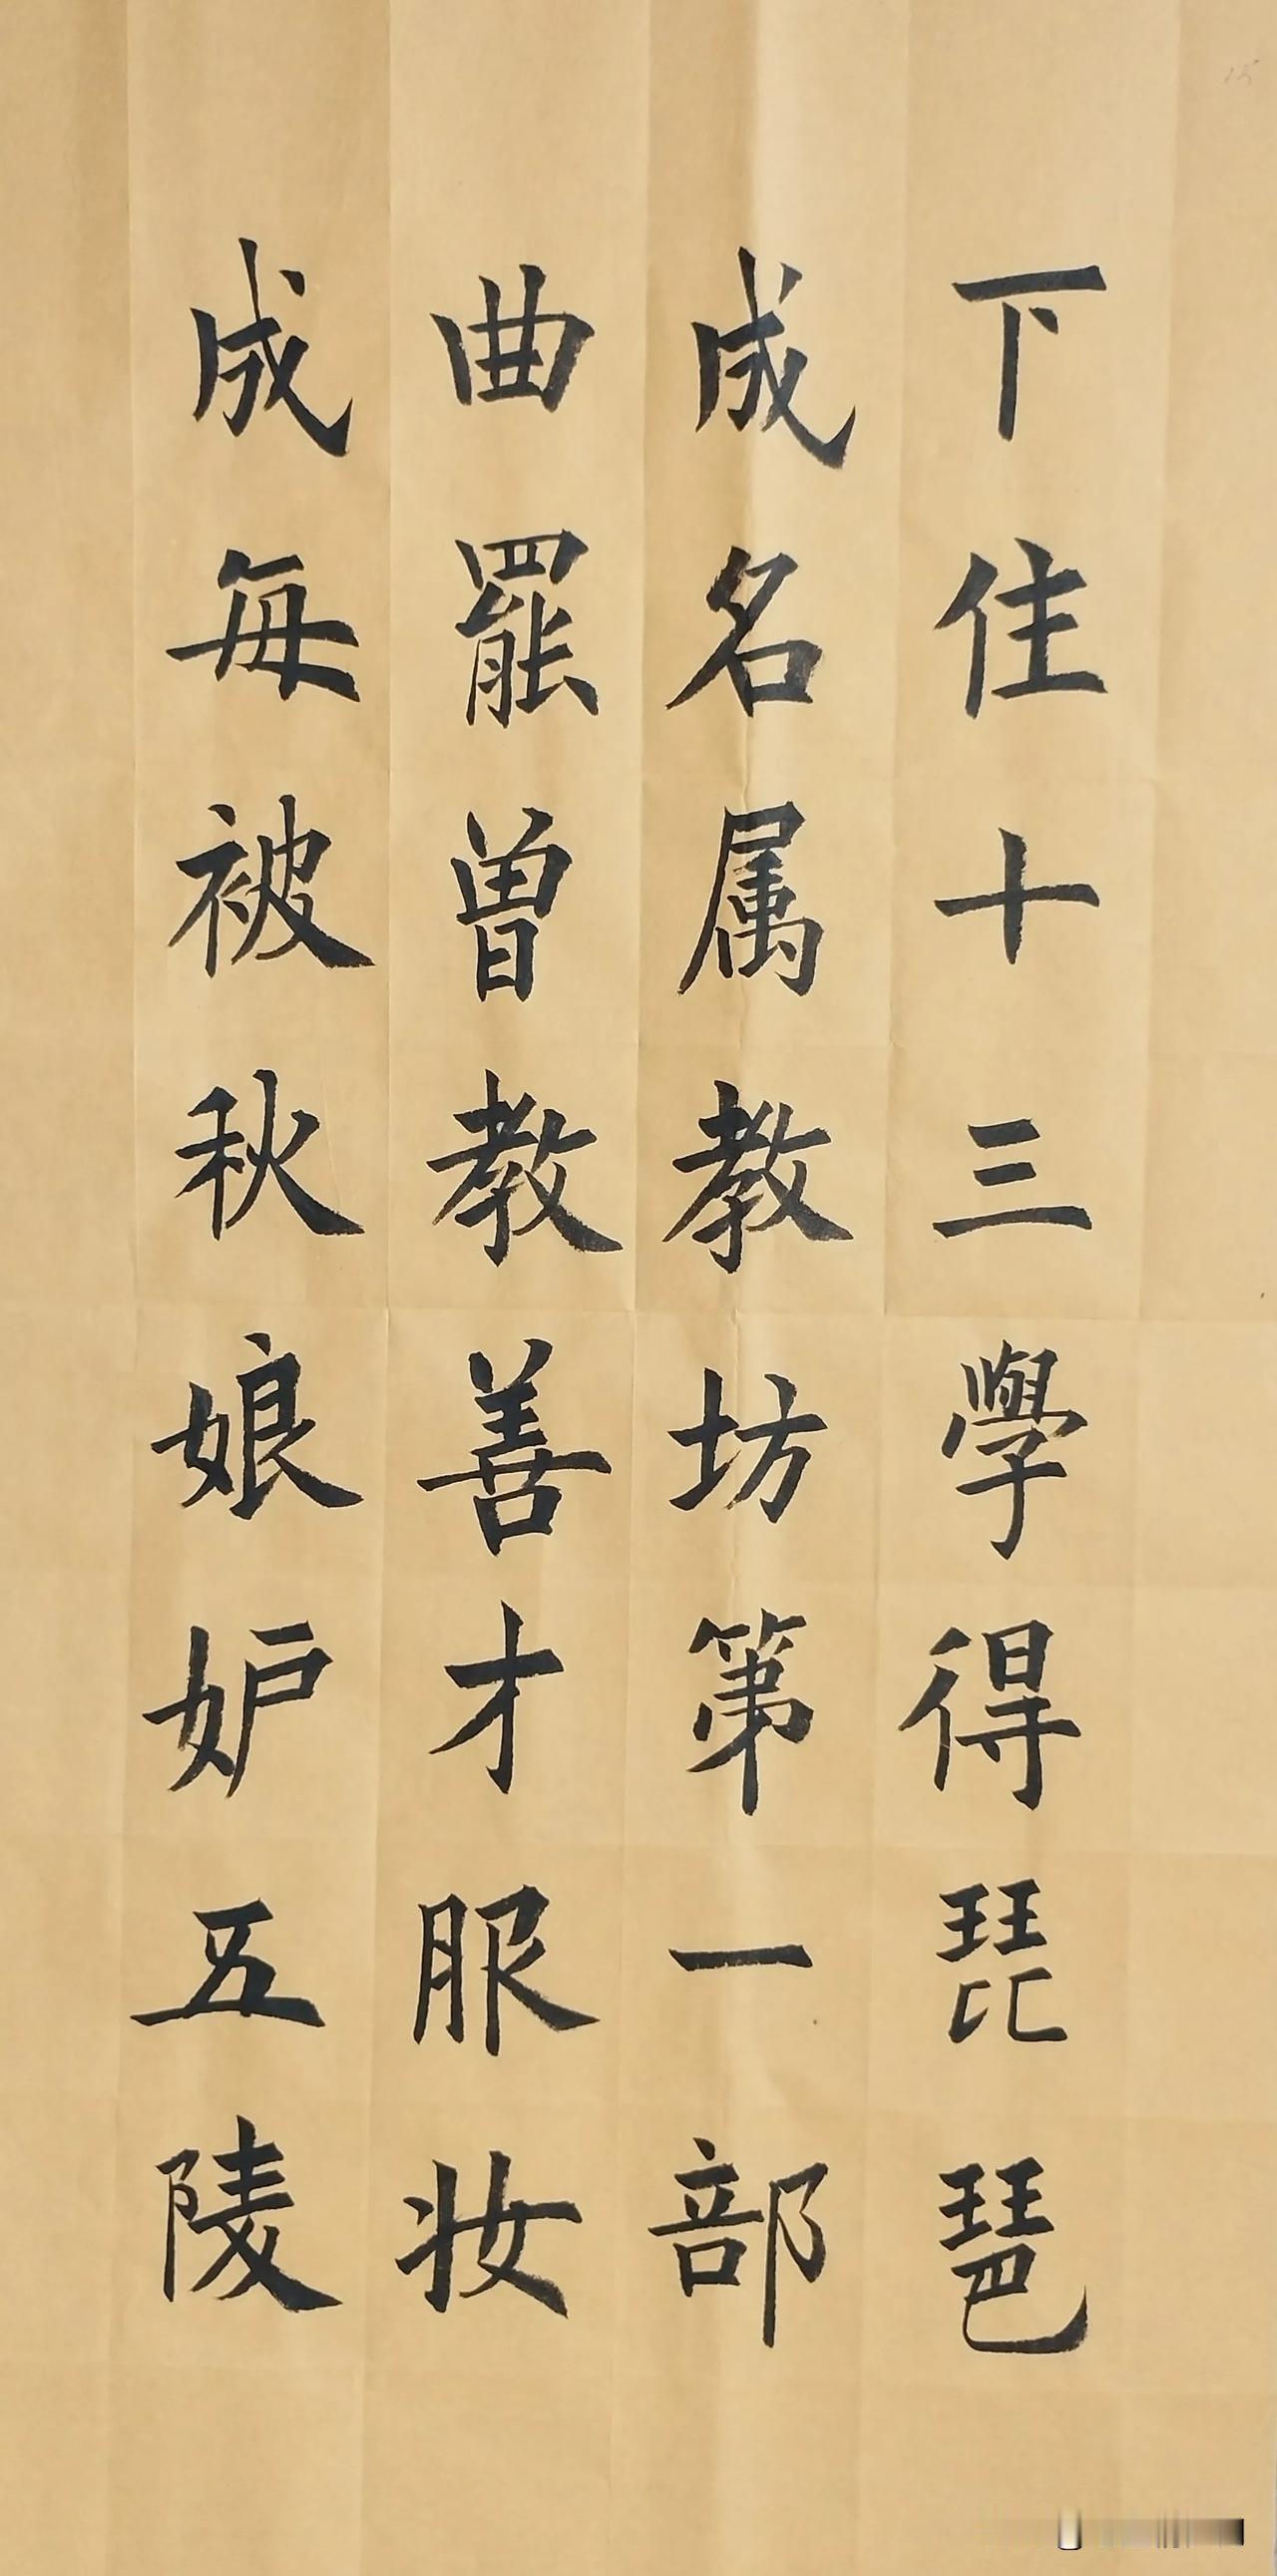 下住十三學得琵琶
成名属教坊第一部
曲罷曾教善才服妆
成每被秋娘妒五陵